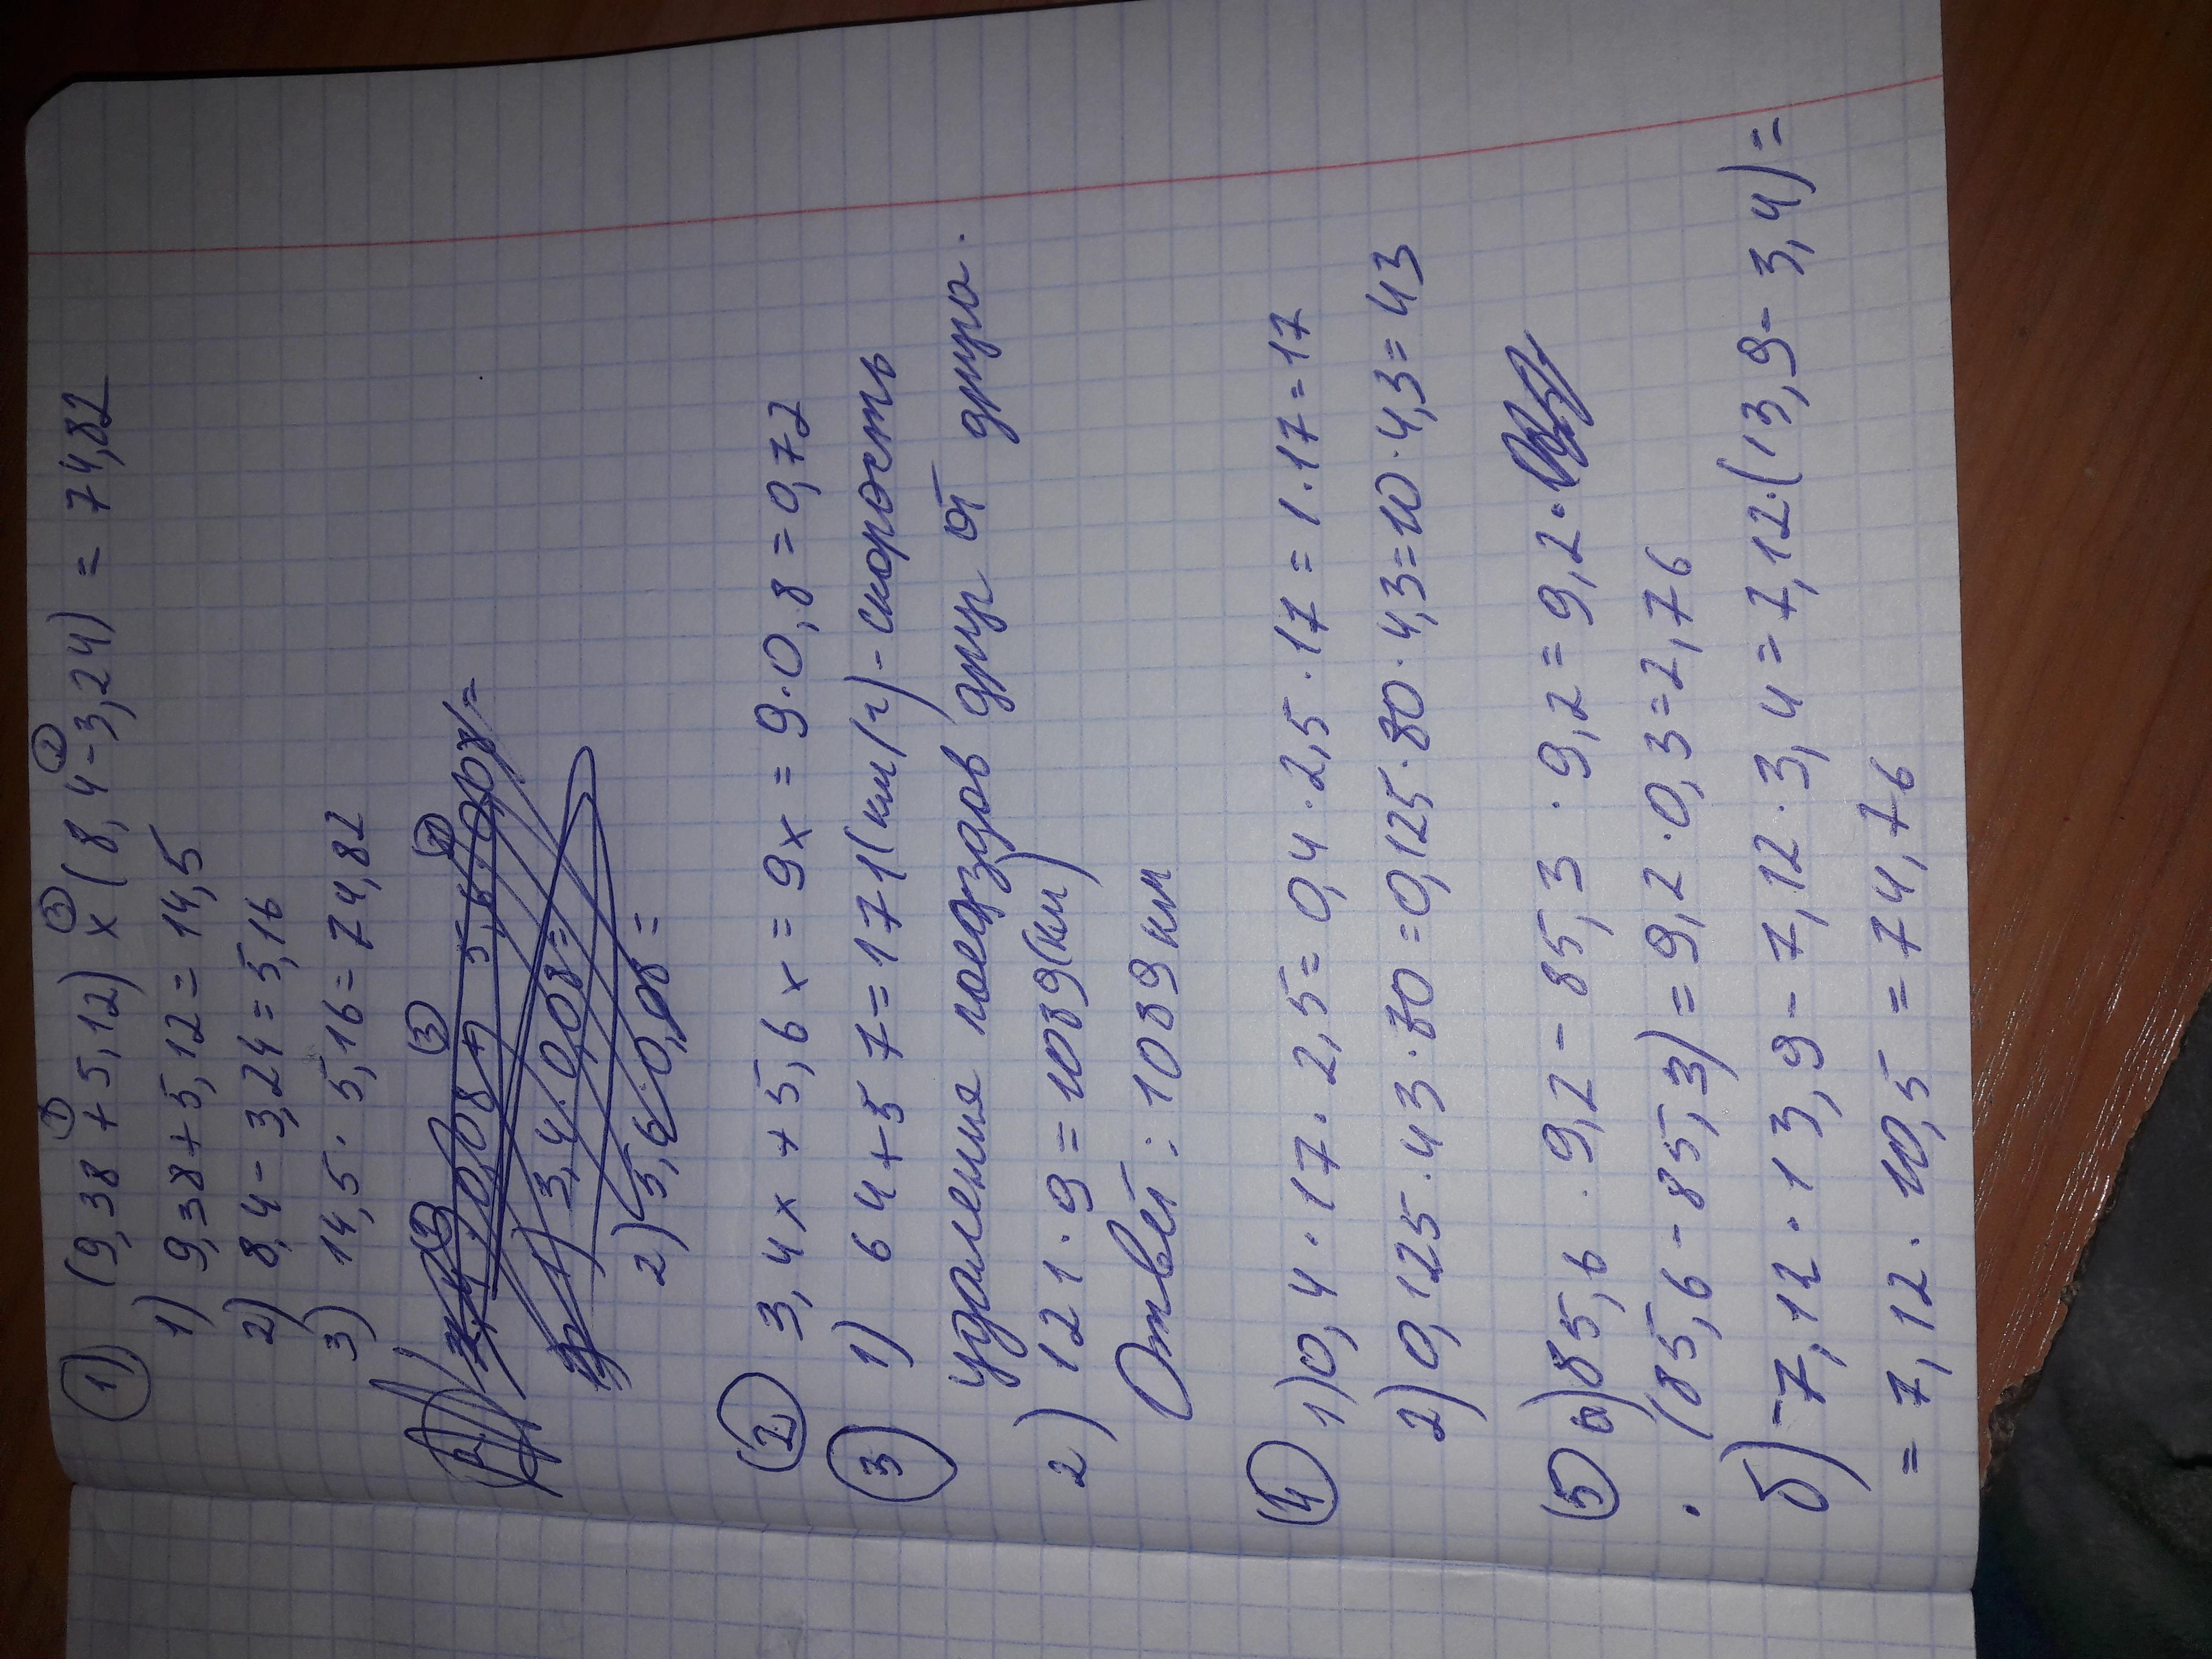 1) (9,38 + 5,12) x (8,4 - 3,24) = 74,82
1) 9,38 + 5,12 = 14,5
2) 8,4 - 3,24 = 5,16
3) 14,5 · 5,16 = 74,82
1) 3,4 · 0,08 =
2) 5,6 · 0,08 =
2) 3,4x + 5,6x = 9x = 9 · 0,8 = 0,72
3) 1) 64 + 57 = 171 (км/ч) - скорость
удаления поездов друг от друга.
2) 121 · 9 = 1089 (км)
Ответ: 1089 км
4) 1) 0,4 · 17 · 2,5 = 0,4 · 2,5 · 17 = 1 · 17 = 17
2) 0,125 · 43 · 80 = 0,125 · 80 · 4,3 = 10 · 4,3 = 43
5) а) 85,6 · 9,2 - 85,3 · 9,2 = 9,2 ·
· (85,6 - 85,3) = 9,2 · 0,3 = 2,76
б) 7,12 · 13,9 - 7,12 · 3,4 = 7,12 · (13,9 - 3,4) =
= 7,12 · 10,5 = 74,76